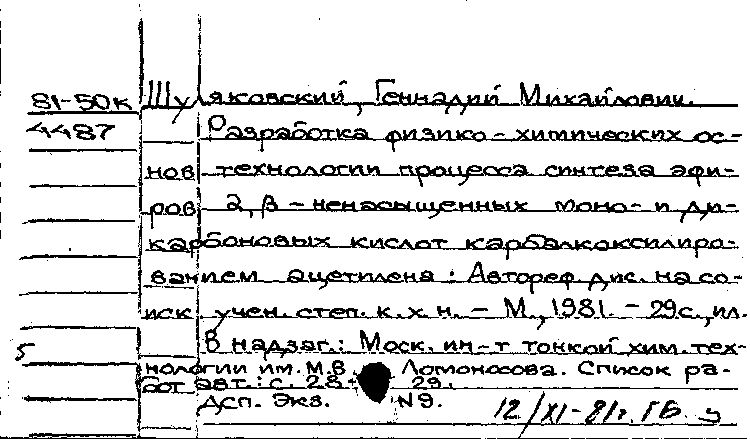 81-50к Шуляковский, Геннадий Михайлович.
4487 Разработка физико-химических ос-
нов технологии процесса синтеза эфи-
ров 2,β-ненасыщенных моно- и ди-
карбоновых кислот карбалкоксилиро-
ванием ацетилена: Автореф. дис. на со-
иск. учен. степ. к.х.н. - М., 1981. - 29с., ил.
В надзаг.: Моск. ин-т тонкой хим. тех-
5 нологии им. М.В. Ломоносова. Список ра-
бот авт.: с. 28-29.
Дсп. Экз. N9. 12/XI-81г. ГБ